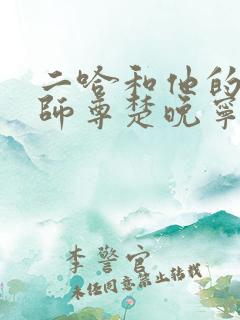 二哈和他的
師尊楚晚寧
李警官
未经同意禁止转载